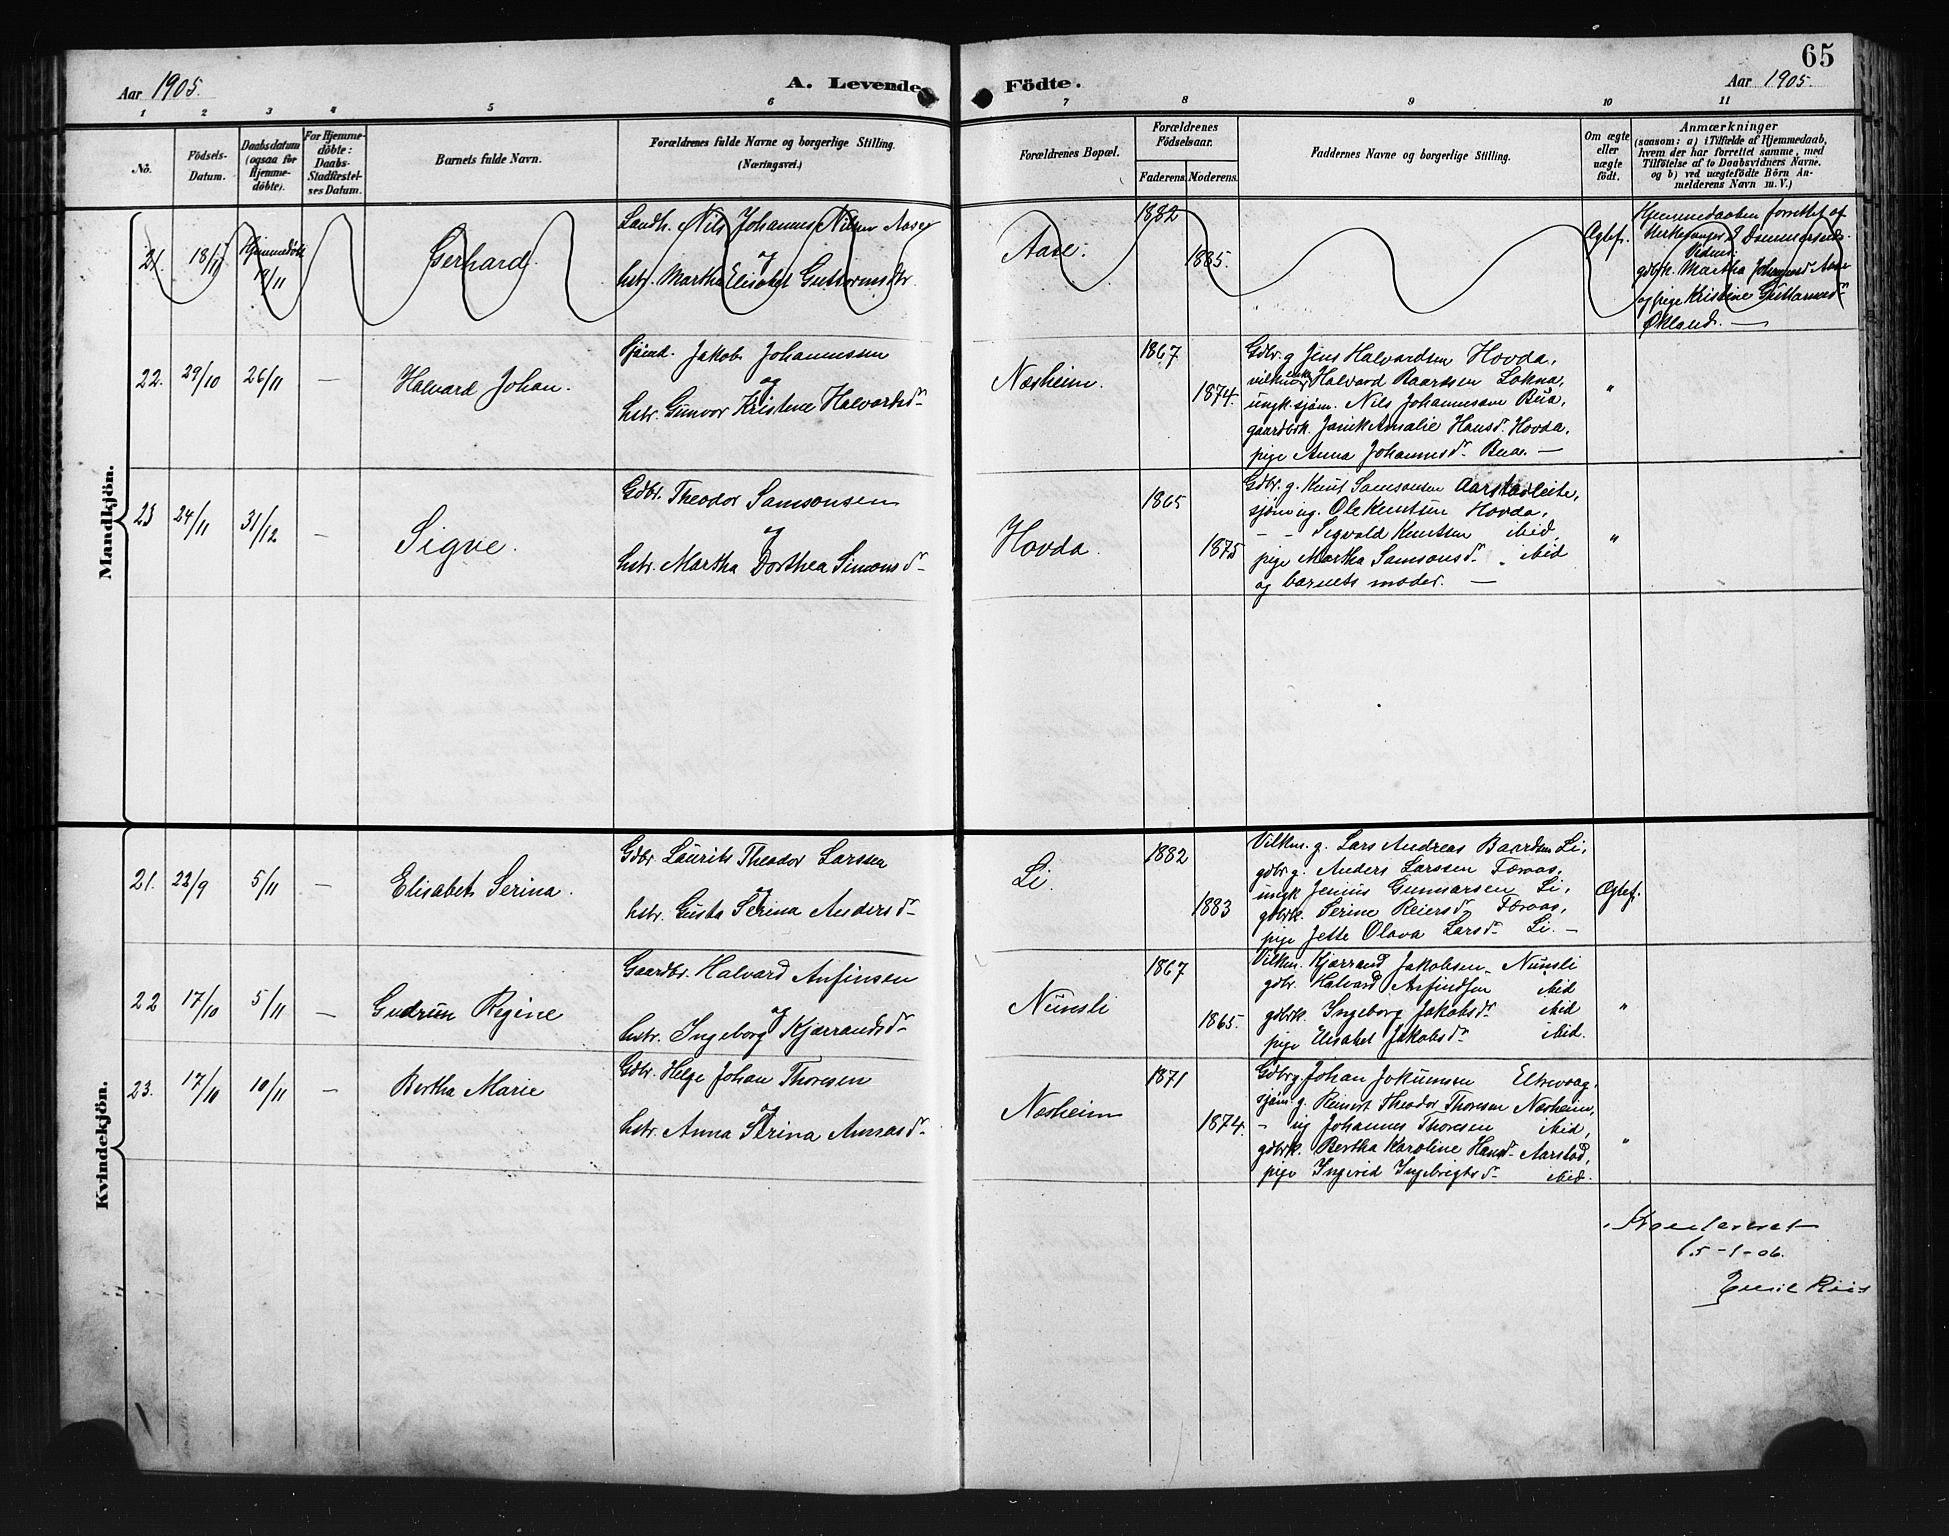 65
Aar 1905.
A. Levende
Födte.
Aar 1905.
1 2 3 4 5 6 7 8 9 10 11
No.
Födsels-
Datum.
Daabsdatum
(ogsaa for
Hjemme-
döbte).
For Hjemme-
döbte:
Daabs-
Stadfæstel-
ses Datum.
Barnets fulde Navn.
Forældrenes fulde Navne og borgerlige Stilling.
(Næringsvei.)
Forældrenes Bopæl.
Forældrenes
Födselsaar.
Faderens. Moderens.
Faddernes Navne og borgerlige Stilling.
Om ægte
eller
uægte
födt.
Anmærkninger
(saasom: a) i Tilfælde af Hjemmedaab,
hvem der har forrettet samme, med
Tilföielse af to Daabsvidners Navne.
og b) ved uægtefödte Börn An-
melderens Navn m. V.)
Mandkjön.
21. 18/11 Hjemmedøbt 18/11
Gerhard.
Landh. Nils Johannes Nilsen Aase
og
hstr. Martha Elisabet Guttormsdr.
Aase.
1882
1885.
Ægtef.
Hjemmedaaben forrettet af
Kirkesanger
Vidner:
gdbrk. Martha Aase
og pige Kristine Guttormsdr
Økland. —
22. 29/10 26/11 —
Halvard Johan.
Sjømd. Jakob Johannessen
og
hstr. Gunvor Kristine Halvardsdr
Næsheim.
1867
1874.
Gdbr. g. Jens Halvardsen Hovda,
vilkm enkm Halvard Baardsen Lokna,
ungk. sjøm. Nils Johannessen Bua,
gaardbrk. Amalie Hansd. Hovda,
pige Anna Johannesdr. Bua. —
"
23 24/11 31/12 —
Sigve.
Gdbr. Theodor Samsonsen
og
hstr. Martha Dorthea Simonsdr
Hovda.
1865
1875
Gdbr. g. Knut Samsonsen Aarstadleite,
sjøm ug. Ole Knutsen Hovda,
— — Sigvald Knutsen ibid,
pige Martha Samsonsdr. ibid
og barnets moder. —
"
Kvindekjön.
21. 22/9 5/11 —
Elisabet Serina.
Gdbr Laurits Theodor Larssen
og
hstr. Gusta Serina Andersdr
Li.
1882
1883
Vilkm. g. Lars Andreas Baardsen Li,
gdbr. g. Anders Larssen Føraas,
ungk Jenius Gunnarsen Li,
gdbrk. Serine Reiersdr Føraas,
pige Jette Olava Larsdr Li. —
Ægtef.
22 17/10 5/11 —
Gudrun Regine
Gaardbr. Halvard Anfinsen
og
hstr. Ingeborg Kjærrandsdr
Nunsli
1867
1865.
Vilkm. Kjærrand Jakobsen Nunsli
gdbr. Halvard Anfindsen ibid
gdbrk. Ingeborg Jakobsdr ibid
pige Elisabet Jakobsdr ibid.
"
23. 17/10 10/11 —
Bertha Marie
Gdbr. Helge Johan Thoresen
og
hstr. Anna Serina Aanasdr
Næsheim
1871
1874.
Gdbr g Johan Jokumsen Eltrevaag,
sjøm. g. Reinert Theodor Thoresen Næsheim,
— ug Johannes Thoresen ibid,
gdbrk. Bertha Karoline Hansdr Aarstad,
pige Ingerid Ingebrigtsdr ibid.
"
Konfereret
15-1-06.
Emil Riis